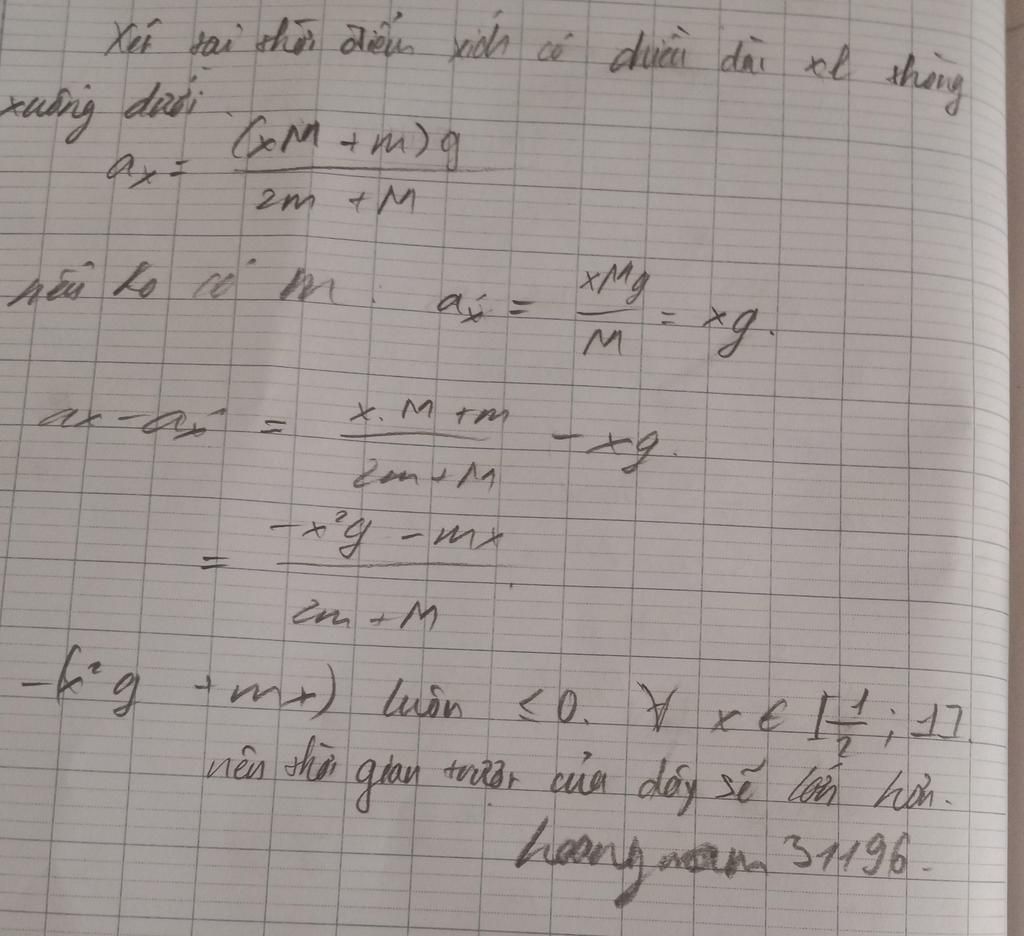 Xét tại thời điểm xích có chiều dài xl thõng
xuống dưới.
ax = (xM + m)g / 2m + M
nếu ko có m : ax' = xMg / M = xg.
ax - ax' = x.M + m / 2m + M - xg.
= -x²g - mx / 2m + M
-(x²g + mx) luôn ≤ 0. ∀ x ∈ [1/2 ; 1]
nên thời gian trượt của dây sẽ lớn hơn.
hoangnam 31196.